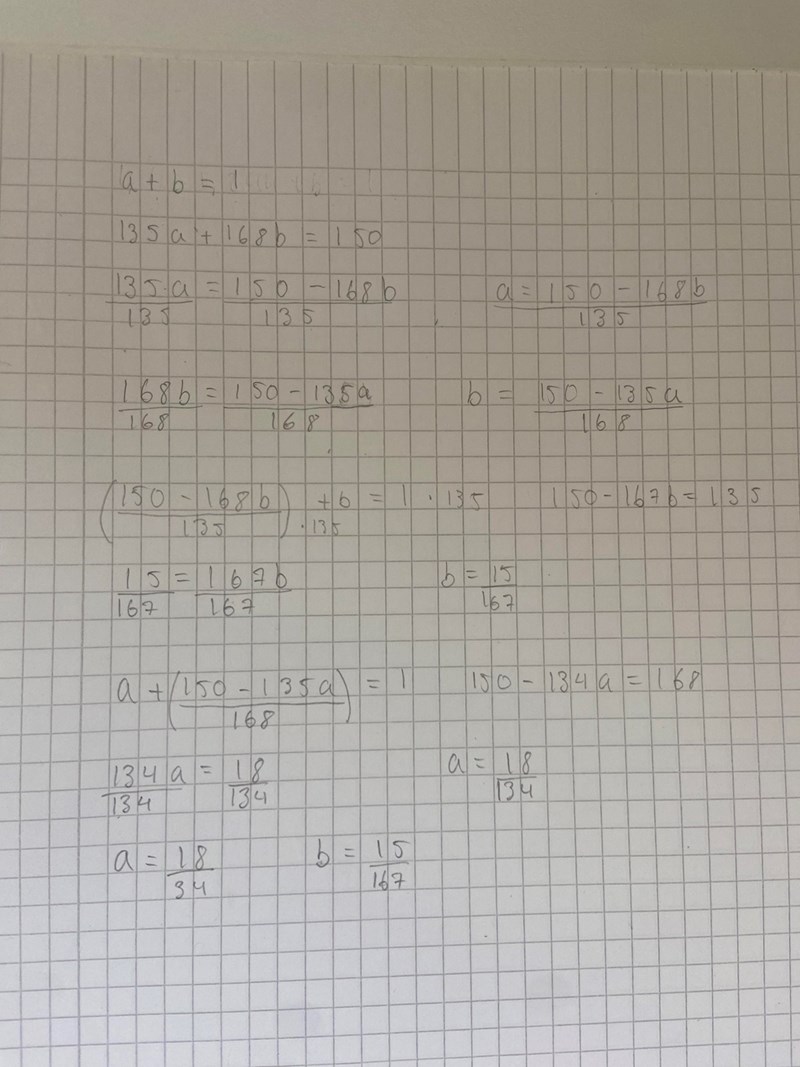 a + b = 1
135a + 168b = 150
135·a/135 = 150 - 168b/135 a = 150 - 168b/135
168b/168 = 150 - 135a/168 b = 150 - 135a/168
(150 - 168b/135)·135 + b = 1 · 135 150 - 167b = 135
15/167 = 167b/167 b = 15/167
a + (150 - 135a/168) = 1 150 - 134a = 168
134a/134 = 18/134 a = 18/134
a = 18/34 b = 15/167